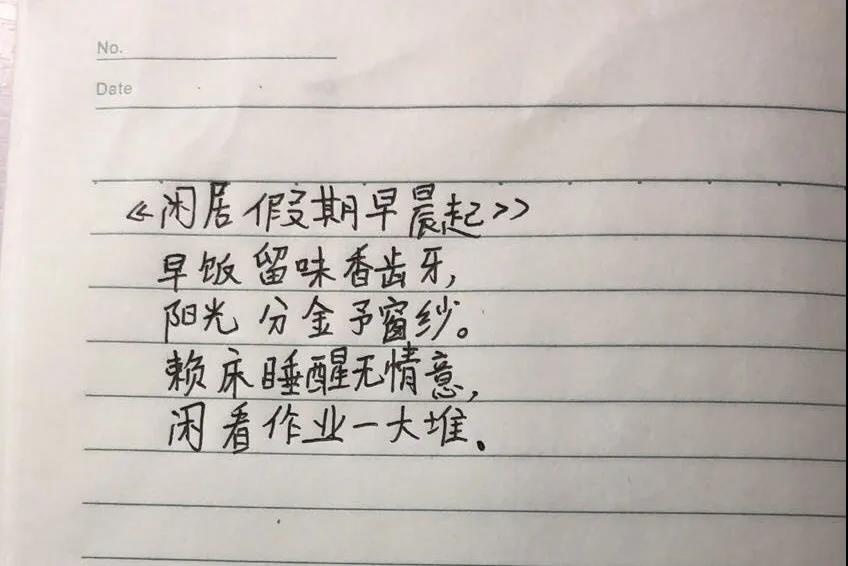 No.
Date
《闲居假期早晨起》
早饭留味香齿牙,
阳光分金予窗纱。
赖床睡醒无情意,
闲看作业一大堆。